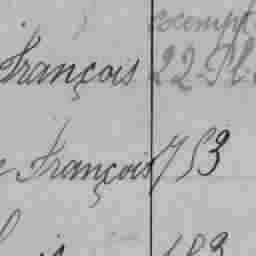 exempt
François 22 Pl.
François 753
183